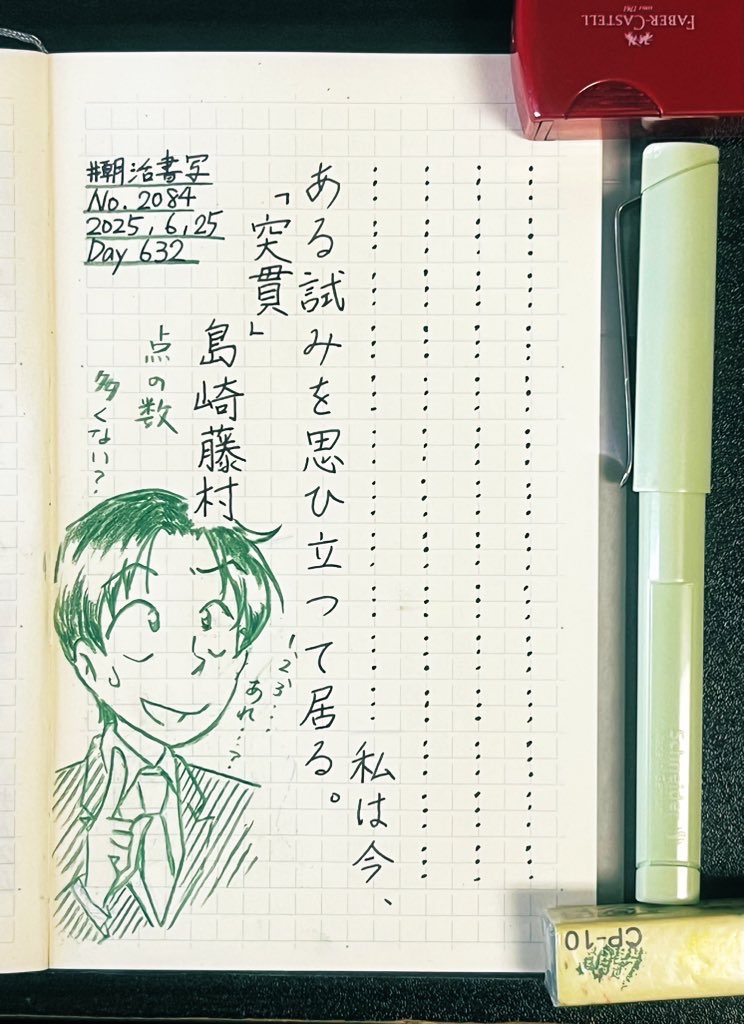 ⋮⋮⋮⋮⋮⋮⋮⋮⋮⋮⋮⋮⋮⋮
⋮⋮⋮⋮⋮⋮⋮⋮⋮⋮⋮⋮⋮⋮
⋮⋮⋮⋮⋮⋮⋮⋮⋮⋮⋮⋮⋮⋮
⋮⋮⋮⋮⋮⋮⋮⋮⋮⋮⋮私は今、
ある試みを思ひ立つて居る。
「突貫」
島崎藤村
#朝活書写
No.2084
2025,6,25
Day 632
点の数
多くない?
1、2、3、…
あれ…?
FABER-CASTELL
since 1761
Schneider
CP-10